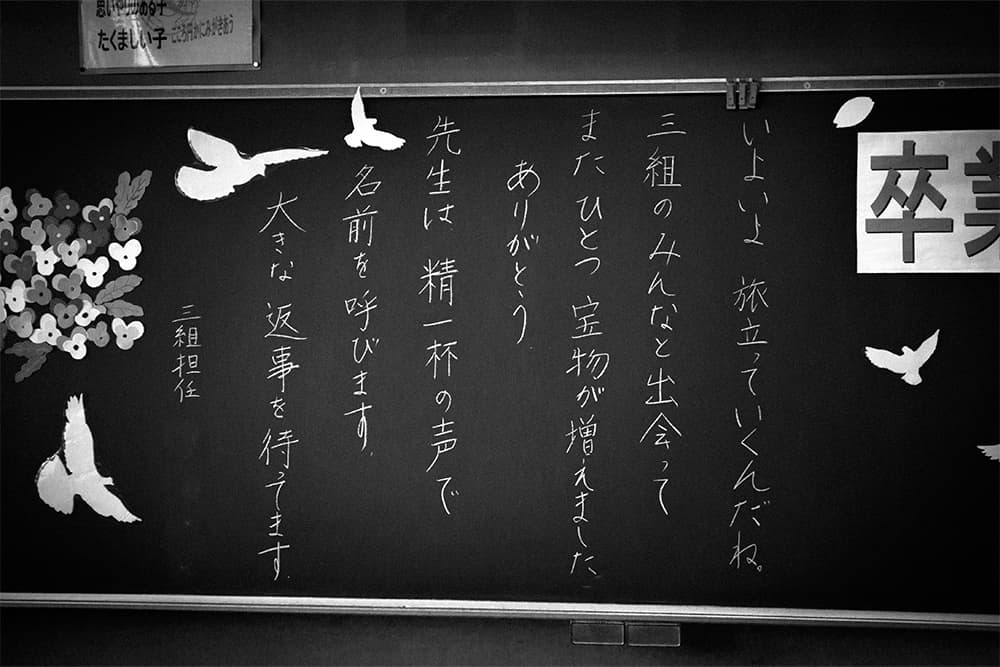 思いやりのある子
たくましい子
卒業
いよいよ 旅立っていくんだね。
三組のみんなと出会って
またひとつ 宝物が増えました
ありがとう.
先生は 精一杯の声で
名前を呼びます.
大きな 返事を待ってます.
三組担任